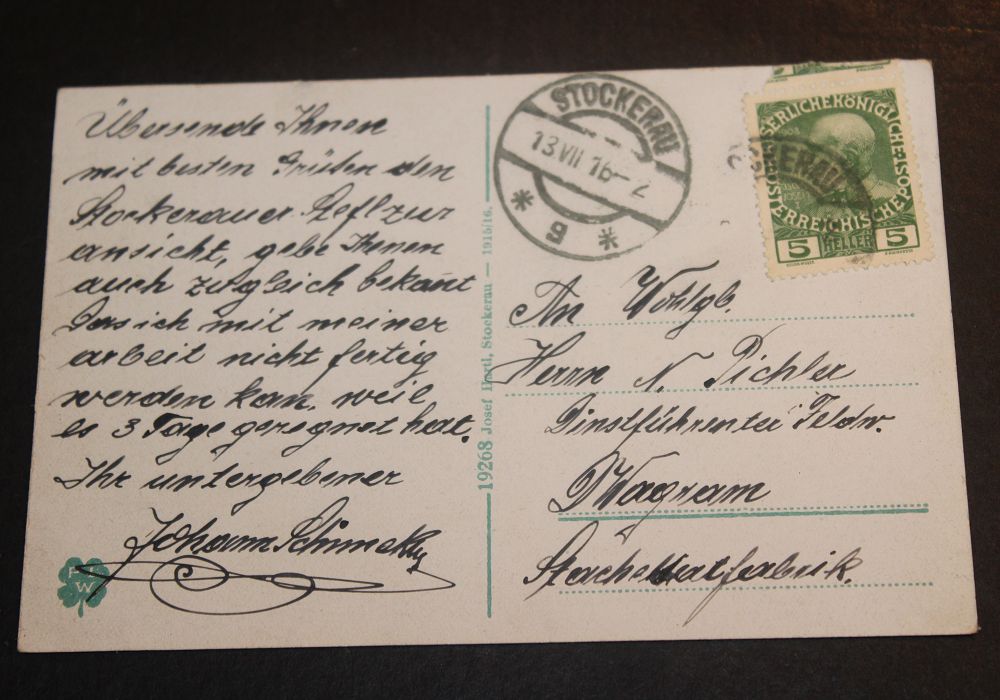 Übersende Ihnen
mit besten Grüßen den
Stockerauer
ansicht, gebe Ihenen
auch zugleich bekannt
Das ich mit meiner
arbeit nicht fertig
werden kan, weil
es 3 Tage geregnet hat.
Ihr untergebener
Johann
W
19268 Josef Hartl, Stockerau — 1915/16.
STOCKERAU
13 VII 16 - 2
* 9 *
KAISERLICHE KÖNIGLICHE
ÖSTERREICHISCHE POST
5 HELLER 5
An Wohlgb.
Herrn N. Pichler
Dinstführenter Feldw.
Wagram